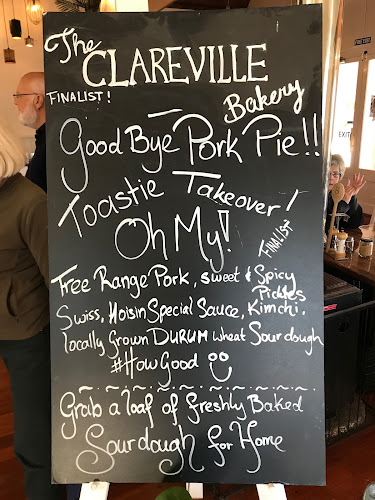 The
CLAREVILLE
Bakery
FINALIST!
Good Bye Pork Pie!!
Toastie Takeover!
Oh My!!
FINALIST
Free Range Pork, sweet & Spicy
Pickles
Swiss, Hoisin Special Sauce, Kimchi,
locally Grown DURUM wheat Sourdough
#HowGood
Grab a loaf of freshly Baked
Sourdough for Home
EXIT